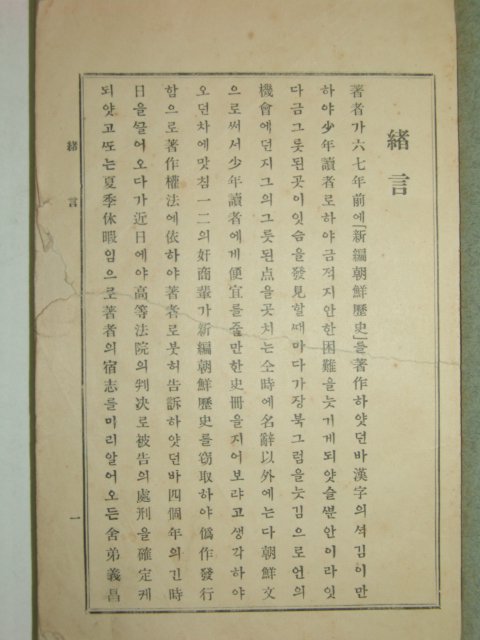 緖言
著者가六七年前에「新編朝鮮歷史」를著作하얏던바漢字의셕김이만
하야少年讀者로하야금적지안한困難을늣기게되얏슬ᄲᅮᆫ안이라잇
다금그릇된곳이잇슴을發見할ᄯᅢ마다가장북그럼을늣김으로언의
機會에던지그의그릇된点을곳치는仝時에名辭以外에는다朝鮮文
으로써서少年讀者에게便宜를줄만한史冊을지어보랴고생각하야
오던차에맛침一二의奸商輩가新編朝鮮歷史를窃取하야僞作發行
함으로著作權法에依하야著者로붓허告訴하얏던바四個年의긴時
日을ᄭᅳᆯ어오다가近日에야高等法院의判决로被告의處刑을確定케
되얏고ᄯᅩ는夏季休暇임으로著者의宿志를미리알어오든舍弟義昌
緖言
一